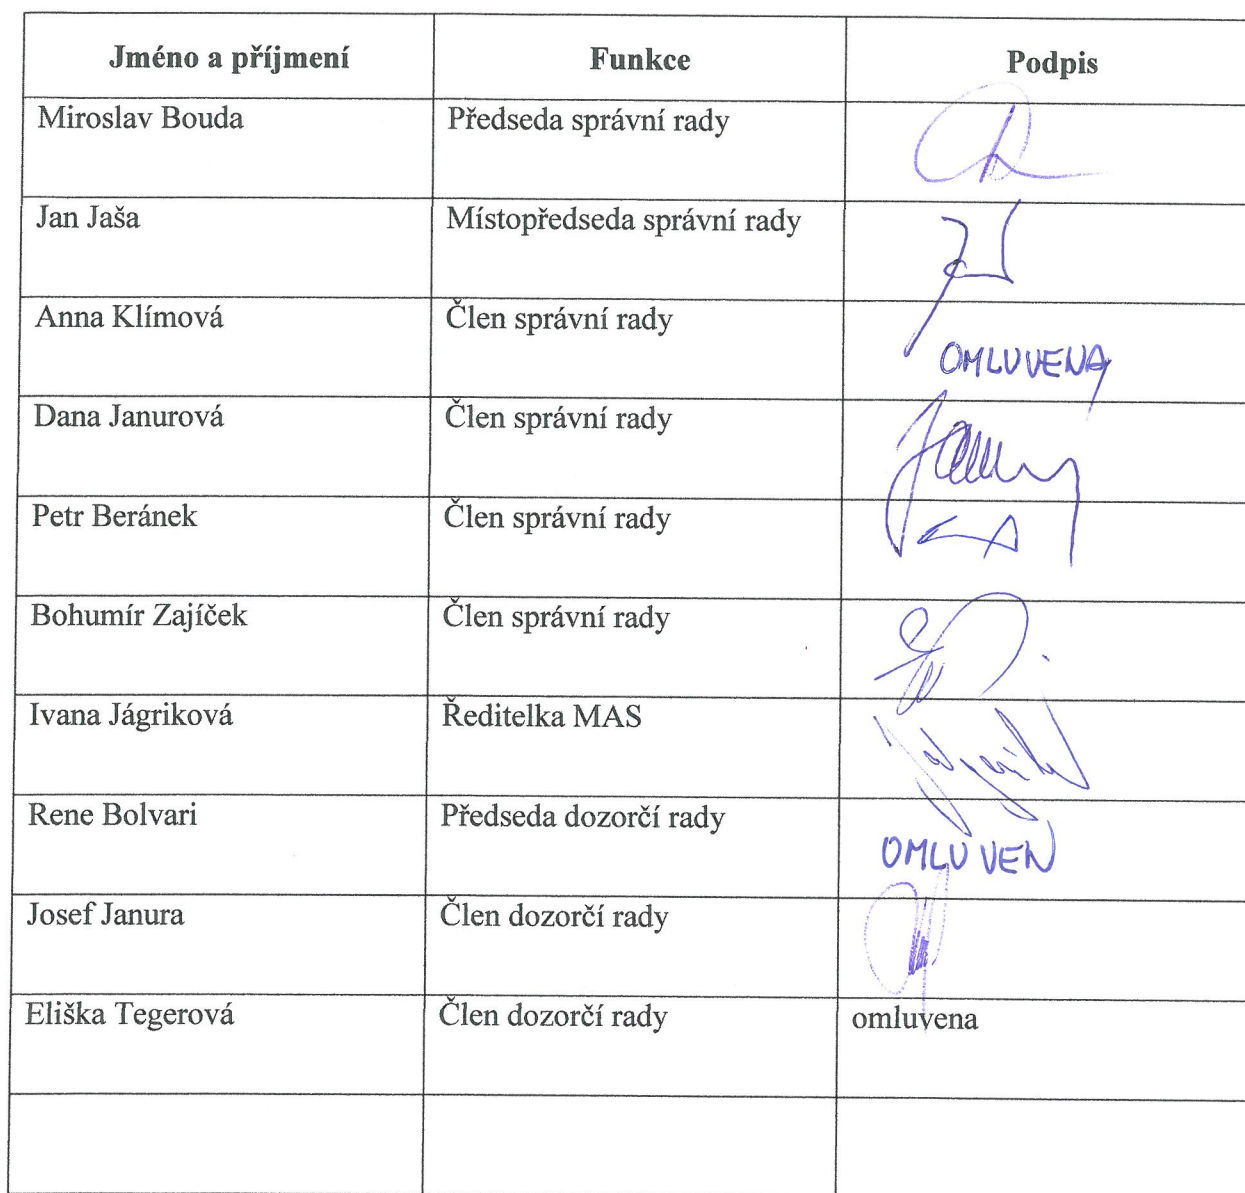 Jméno a příjmení Funkce Podpis
Miroslav Bouda Předseda správní rady
Jan Jaša Místopředseda správní rady
Anna Klímová Člen správní rady OMLUVENA
Dana Janurová Člen správní rady
Petr Beránek Člen správní rady
Bohumír Zajíček Člen správní rady
Ivana Jágriková Ředitelka MAS
Rene Bolvari Předseda dozorčí rady OMLUVEN
Josef Janura Člen dozorčí rady
Eliška Tegerová Člen dozorčí rady omluvena